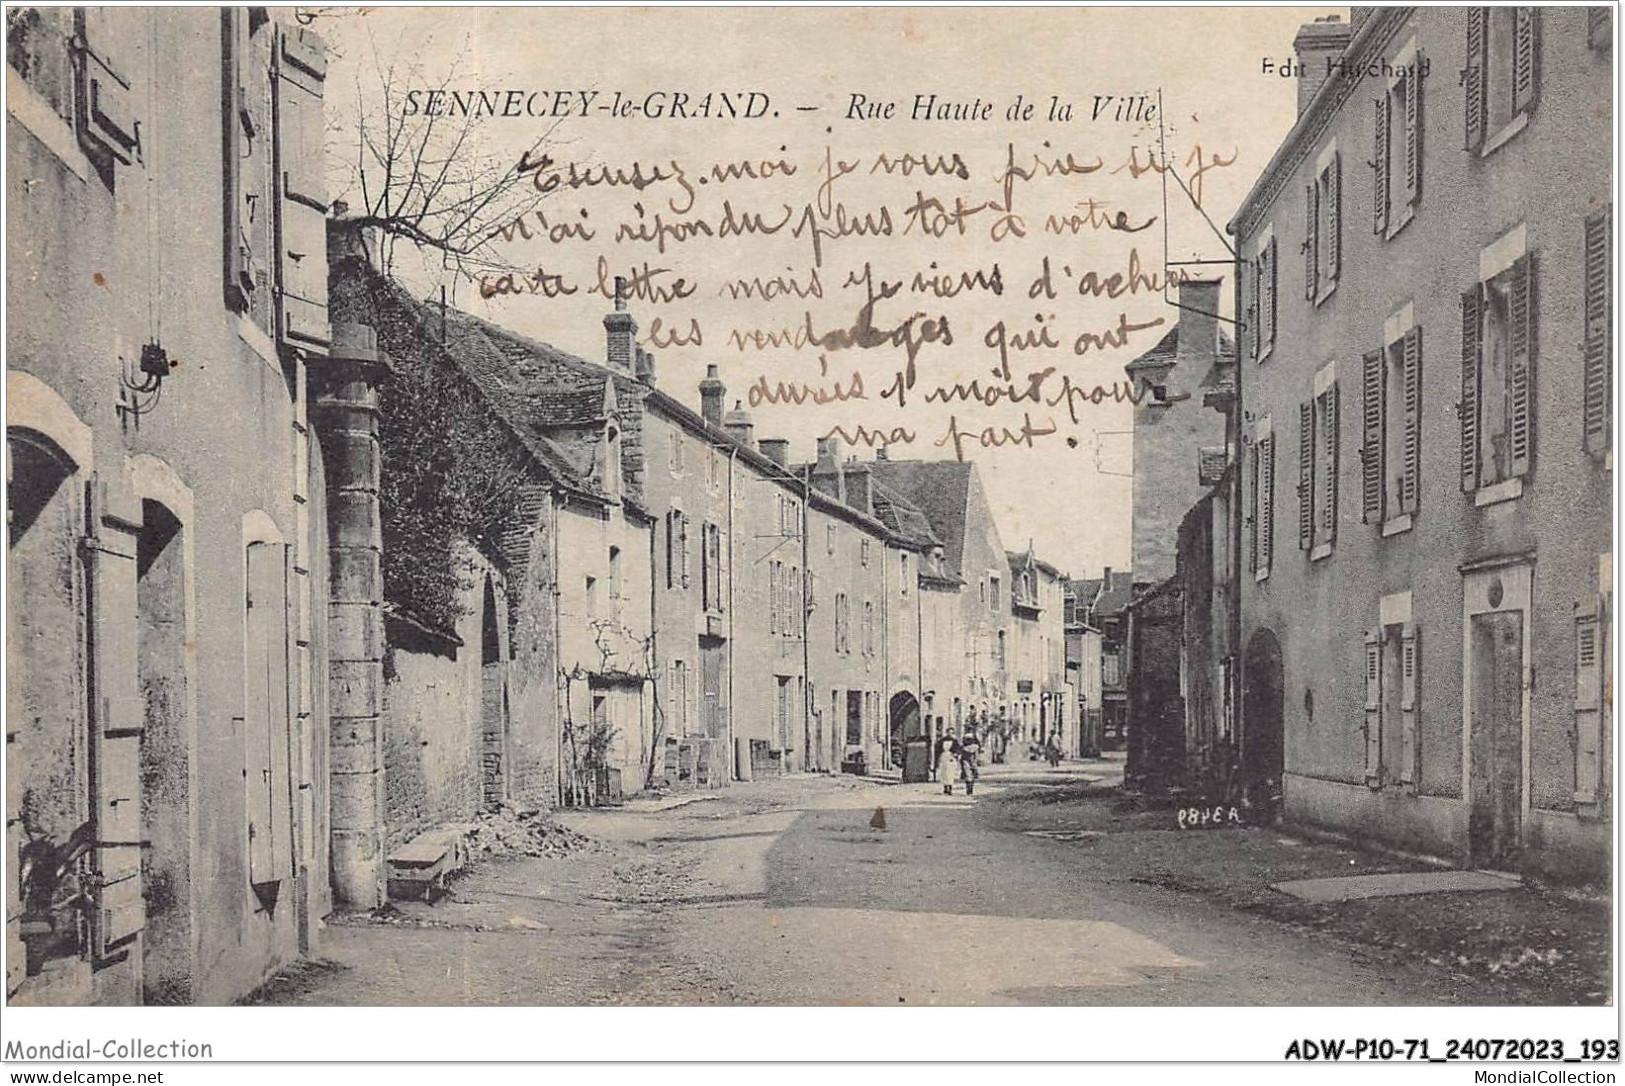 Edit Huchard
SENNECEY-le-GRAND. – Rue Haute de la Ville
Escusez-moi je vous prie si je
n'ai répondu plus tôt à votre
carte lettre mais je viens d'achever
les vendanges qui ont
durées 1 mois pour
ma part.
ROYER
Mondial-Collection
ADW-P10-71_24072023_193
delcampe.net
MondialCollection